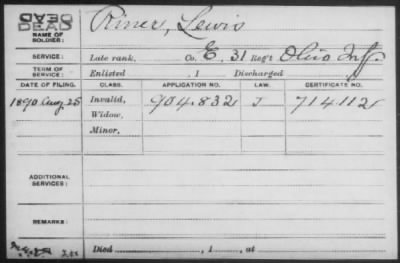 DEAD
DEAD
NAME OF SOLDIER: Riner, Lewis
SERVICE: Late rank, Co. E. 31 Reg't Ohio Inf.
TERM OF SERVICE: Enlisted , 1 Discharged
DATE OF FILING. CLASS. APPLICATION NO. LAW. CERTIFICATE NO.
1890 Aug. 25 Invalid, 904.832 J 714112
Widow,
Minor,
ADDITIONAL SERVICES:
REMARKS:
Died , 1 , at